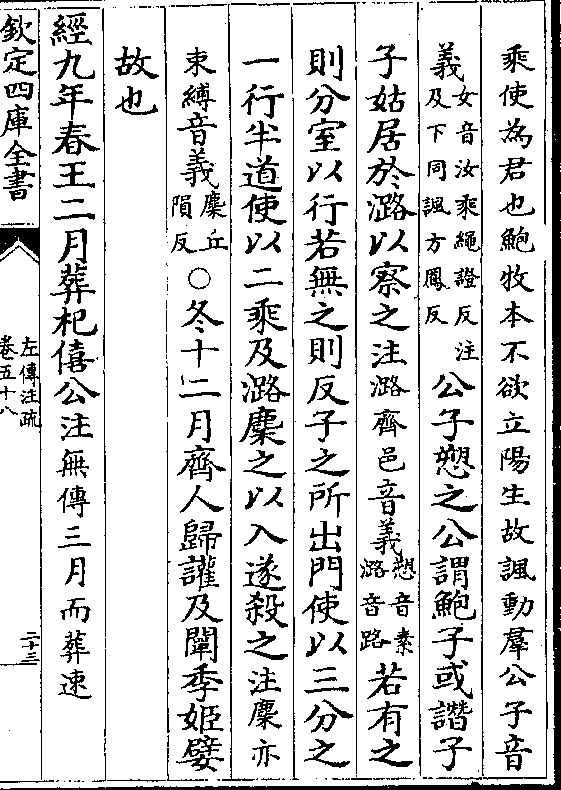 乘使為君也鮑牧本不欲立陽生故諷動羣公子音
義女音汝乘繩證反注及下同諷方鳳反公子愬之公謂鮑子或譖子
子姑居於潞以察之注潞齊邑音義愬音素潞音路若有之
則分室以行若無之則反子之所出門使以三分之
一行半道使以二乘及潞麇之以入遂殺之注麇亦
束縛音義麇丘隕反○冬十二月齊人歸讙及闡季姬嬖
故也
經九年春王二月葬杞僖公注無傳三月而葬速
欽定四庫全書
左傳注疏
卷五十八
二十三